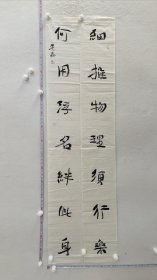 細推物理須行樂
何用浮名絆此身